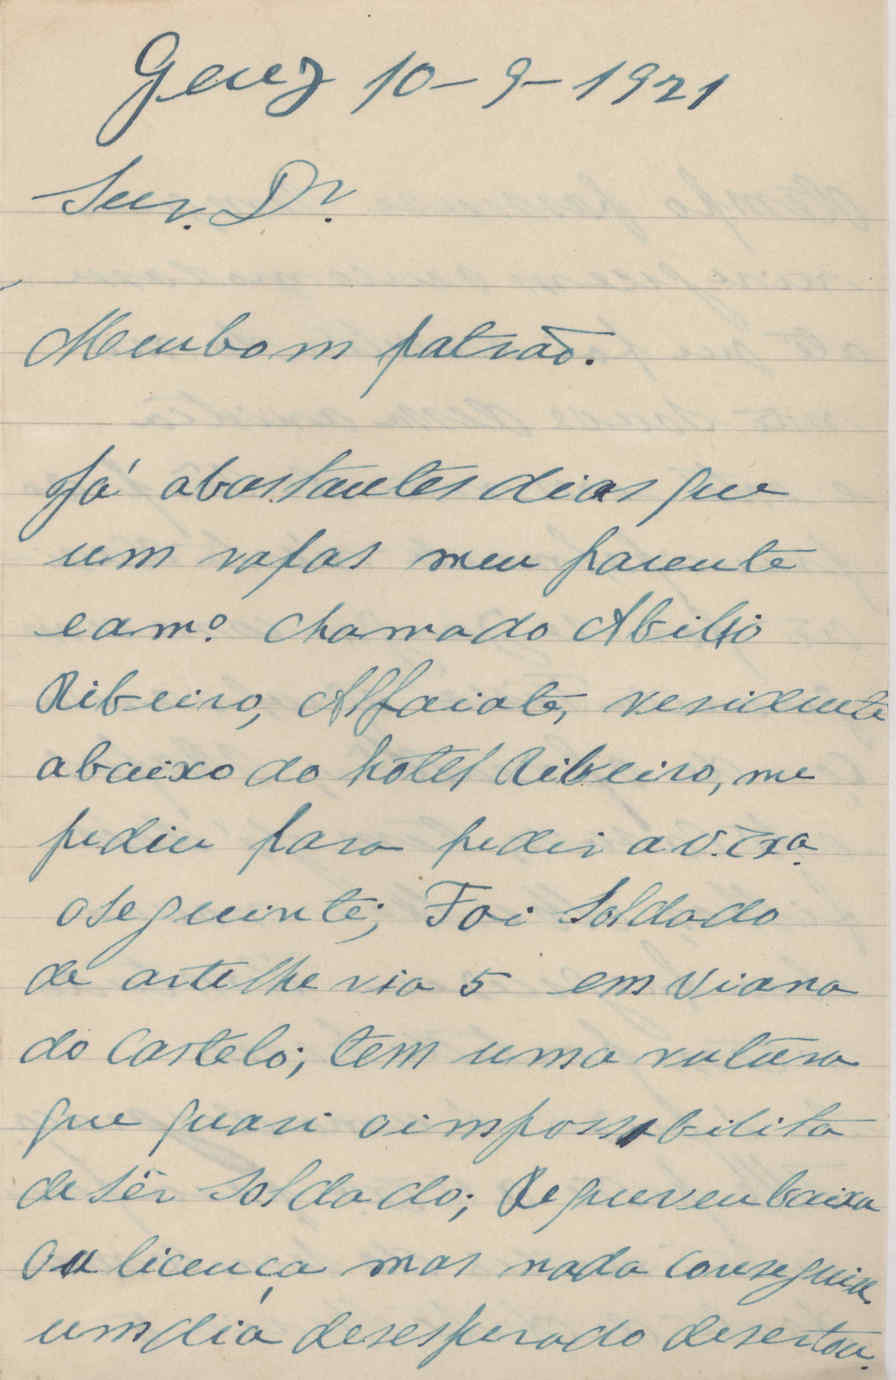 Gerez 10-9-1921
Snr. Dr.
Meu bom patrão.
Já abastantes dias que
um rapas meu parente
e am.º chamado Abilio
Ribeiro, Alfaiate, residente
abaixo do hotel Ribeiro, me
pediu para pedir a V. Exª
o seguinte; Foi soldado
de artelheria 5 em Viana
do Castelo; tem uma rutura
que quasi o impossibilita
de sêr soldado; Requereu baixa
ou licença mas nada conseguiu
um dia desesperado desertou.